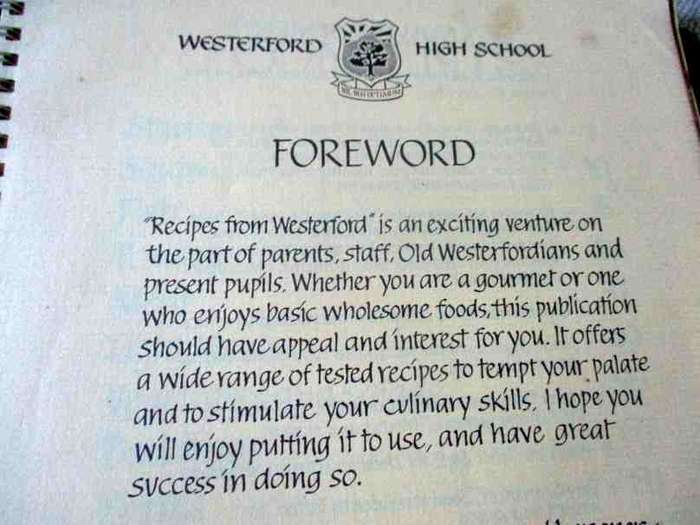 WESTERFORD HIGH SCHOOL
FOREWORD
"Recipes from Westerford" is an exciting venture on
the part of parents, staff, Old Westerfordians and
present pupils. Whether you are a gourmet or one
who enjoys basic wholesome foods, this publication
should have appeal and interest for you. It offers
a wide range of tested recipes to tempt your palate
and to stimulate your culinary skills. I hope you
will enjoy putting it to use, and have great
success in doing so.